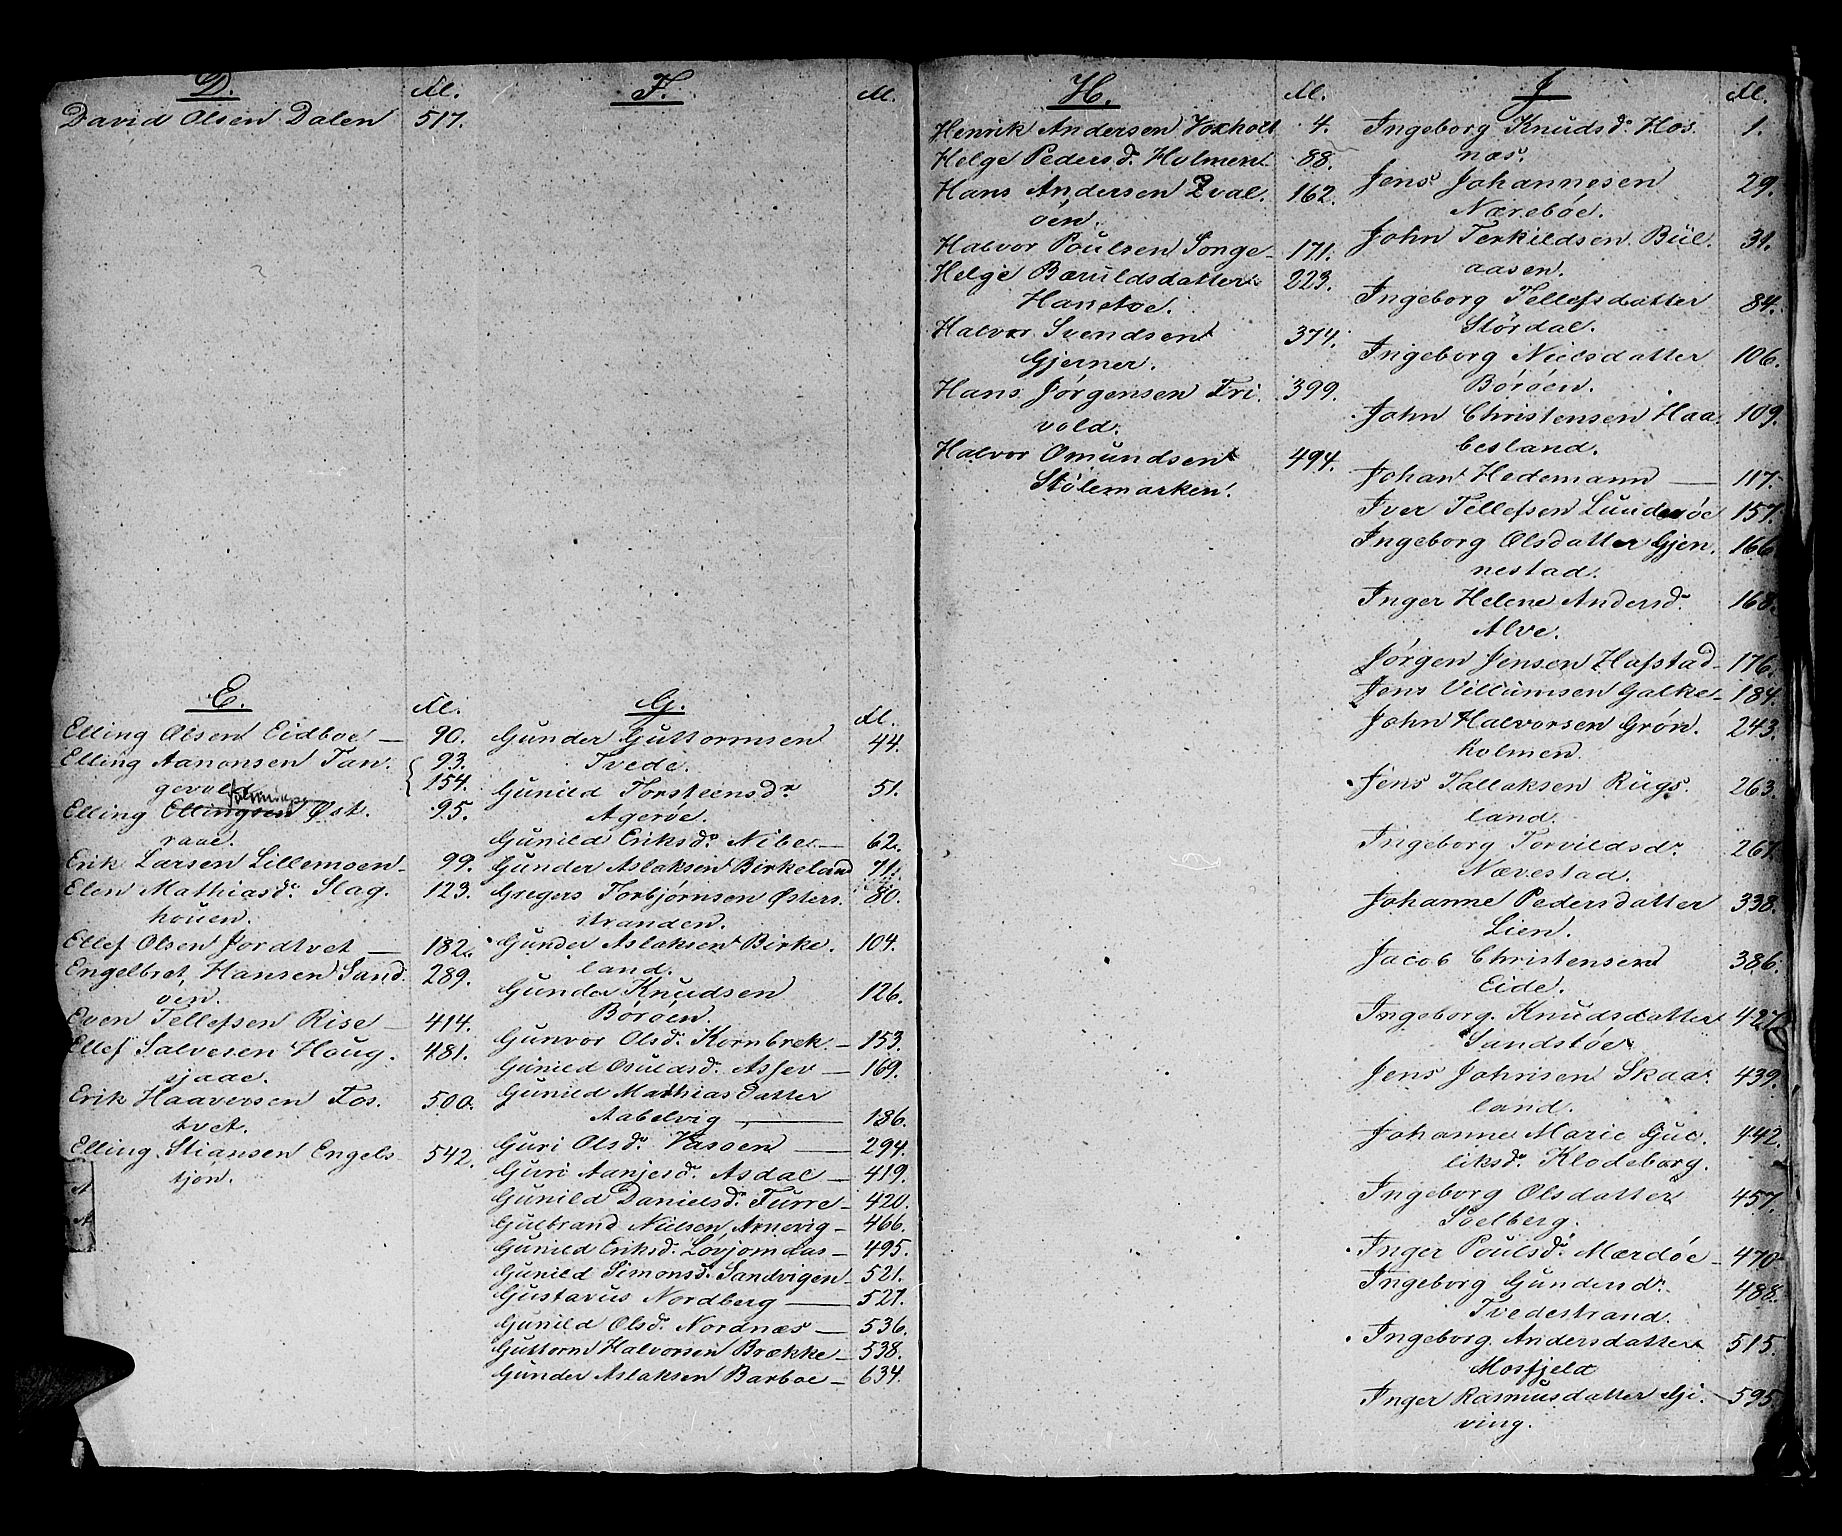 D. Al.
David Olsen Dalen 517.
E. Al.
Elling Olsen Eidboe — 90.
Elling Aanonsen Tan- 93.
gevald 154.
Elling Ellingsen Øst- 95.
raae.
Erik Larsen Lillemoen 99.
Elen Mathiasdr. Slag- 123.
houen.
Ellef Olsen Jordtvet — 182.
Engelbret Hansen Sand- 289.
öen.
Even Tellefsen Rise — 414.
Ellef Salvesen Houg- 481.
sjaae.
Erik Haaversen Fos- 500.
tvet.
Elling Stiansen Engels- 542.
tjøn.
F. Al.
G. Al.
Gunder Guttormsen 44.
Tvede.
Gunild Torsteensdr. 51.
Agerøe.
Gunild Eriksdr. Nibe — 62.
Gunder Aslaksen Birkeland 71.
Gregers Torbjørnsen Østers- 80.
stranden.
Gunder Aslaksen Birke- 104.
land.
Gunder Knudsen 126.
Börøen.
Gunvor Olsdr. Kornbrek — 153.
Gunild Osuldsdr. Asfev — 169.
Gunild Mathiasdatter
Aabelvig — 186.
Guri Olsdr. Vasoen — 294.
Guri Aanjersdr. Asdal — 419.
Gunild Danielsdr. Furre — 420.
Gulbrand Nielsen Arnevig — 466.
Gunild Eriksdr. Løvjomaas — 495.
Gunild Simonsdr. Sandvigen — 521.
Gustavus Nordberg — 527.
Gunild Olsdr. Nordnæs — 536.
Guttorm Halvorsen Brække — 538.
Gunder Aslaksen Barboe — 634.
H. Al.
Henrik Andersen Voxholt 4.
Helge Pedersdr. Holmen 88.
Hans Andersen Hval- 162.
öen.
Halvor Poulsen Songe — 171.
Helge Bæruldsdatter 223.
Hanetoe.
Halvor Svendsen 374.
Gjerner.
Hans Jørgensen Fri- 399.
vold.
Halvor Omundsen 494.
Stølemarken.
J. Al.
Ingeborg Knudsdr. Hos- 1.
næs.
Jens Johannesen 29.
Nærebøe.
John Terkildsen Bül- 31.
aasen.
Ingeborg Tellefsdatter 84.
Stördal.
Ingeborg Nielsdatter 106.
Börøen.
John Christensen Haa- 109.
besland.
Johan Hedemann — 117.
Iver Tellefsen Lunderöe 157.
Ingeborg Olsdatter Gjen- 166.
nestad.
Inger Helene Andersdr. 168.
Alve.
Jörgen Jensen Hafstad — 176.
Jens Villumsen Galke — 184.
John Halvorsen Grøn- 243.
holmen.
Jens Tallaksen Rugs- 263.
land.
Ingeborg Torvildsdr. 267.
Nævestad.
Johanne Pedersdatter 338.
Lien.
Jacob Christensen 386.
Eide.
Ingeborg Knudsdatter 427.
Sandstøe.
Jens Johnsen Skaa- 439.
land.
Johanne Marie Gul- 442.
liksdr. Klodeborg.
Ingeborg Olsdatter 457.
Solberg.
Inger Poulsdr. Mærdøe — 470.
Ingeborg Gundersdr. 488.
Tvedestrand.
Ingeborg Andersdatter 515.
Mosfjeld
Inger Rasmusdatter Gji- 595.
ving.